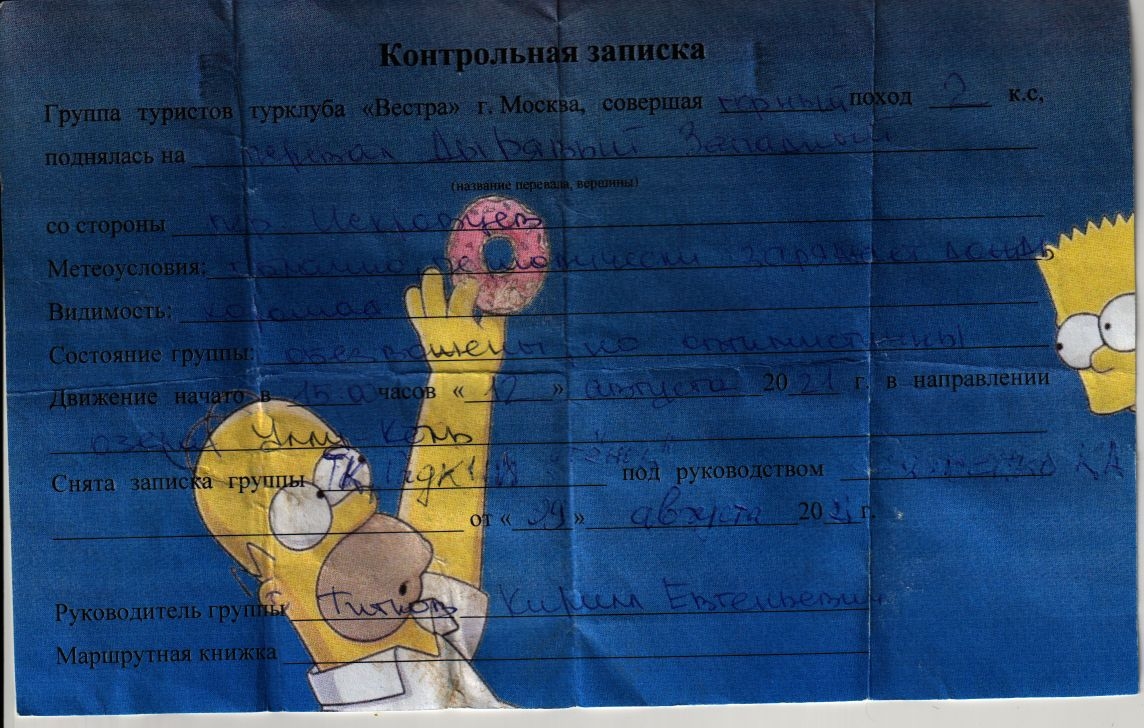 Контрольная записка
Группа туристов турклуба «Вестра» г. Москва, совершая горный поход 2 к.с,
поднялась на перевал Дырявый Западный
(название перевала, вершины)
со стороны пер.
Метеоусловия: периодически заряжает дождь
Видимость: хорошая
Состояние группы: обезвожены, но оптимистичны
Движение начато в 15.0 часов «12» августа 2021 г. в направлении
озера Уллу Кёль
Снята записка группы ТК под руководством
от «29» августа 2021 г.
Руководитель группы Титков Кирилл Евгеньевич
Маршрутная книжка